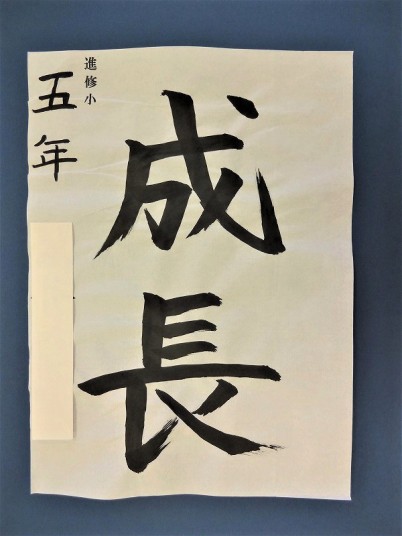 成長
進修小
五年